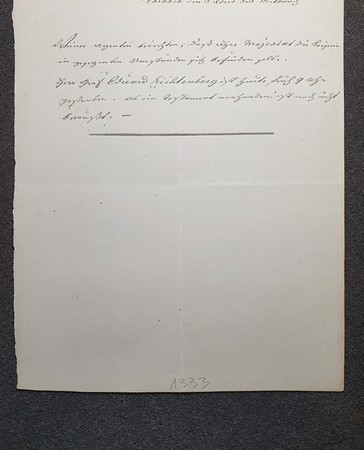 Wiener Agenten berichten, daß Ihre Majestät die Kaiserin
in gesegneten Umständen sich befinden soll. –
Herr Graf Eduard Lichtenberg ist heute, früh 9 Uhr
gestorben. Ob ein Testament vorhanden ist noch nicht
bewußt. —
1333